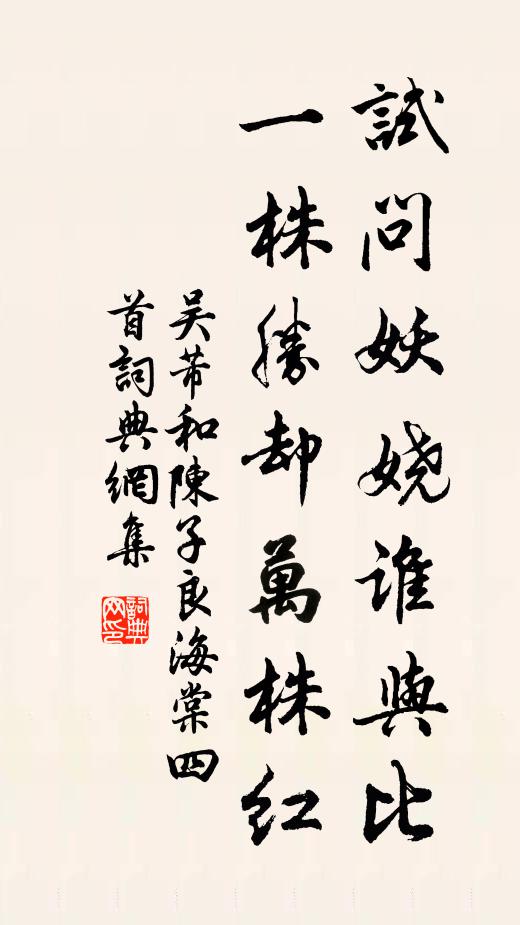 試問妖嬈誰與比
一株勝却萬株紅
吴芾和陳子良海棠四
首詞典網集
詞典
网印